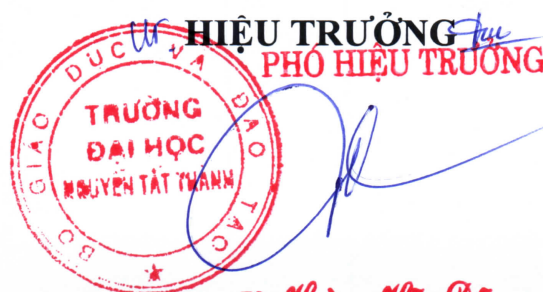 HIỆU TRƯỞNG
PHÓ HIỆU TRƯỞNG
BỘ GIÁO DỤC VÀ ĐÀO TẠO
TRƯỜNG
ĐẠI HỌC
NGUYỄN TẤT THÀNH